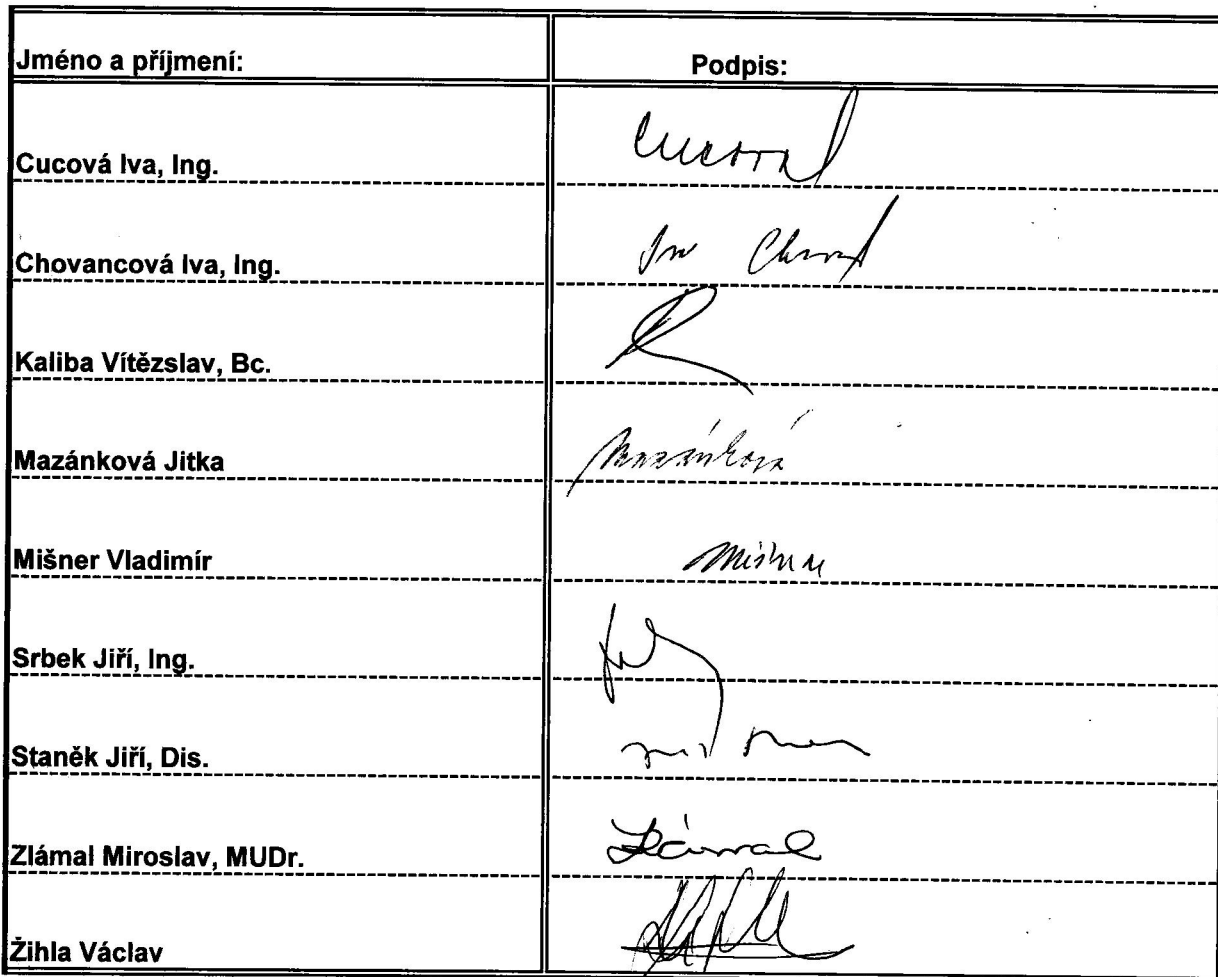 Jméno a příjmení: Podpis:
Cucová Iva, Ing. Cucová
Chovancová Iva, Ing.
Kaliba Vítězslav, Bc.
Mazánková Jitka Mazánková
Mišner Vladimír Mišner
Srbek Jiří, Ing.
Staněk Jiří, Dis.
Zlámal Miroslav, MUDr. Zlámal
Žihla Václav